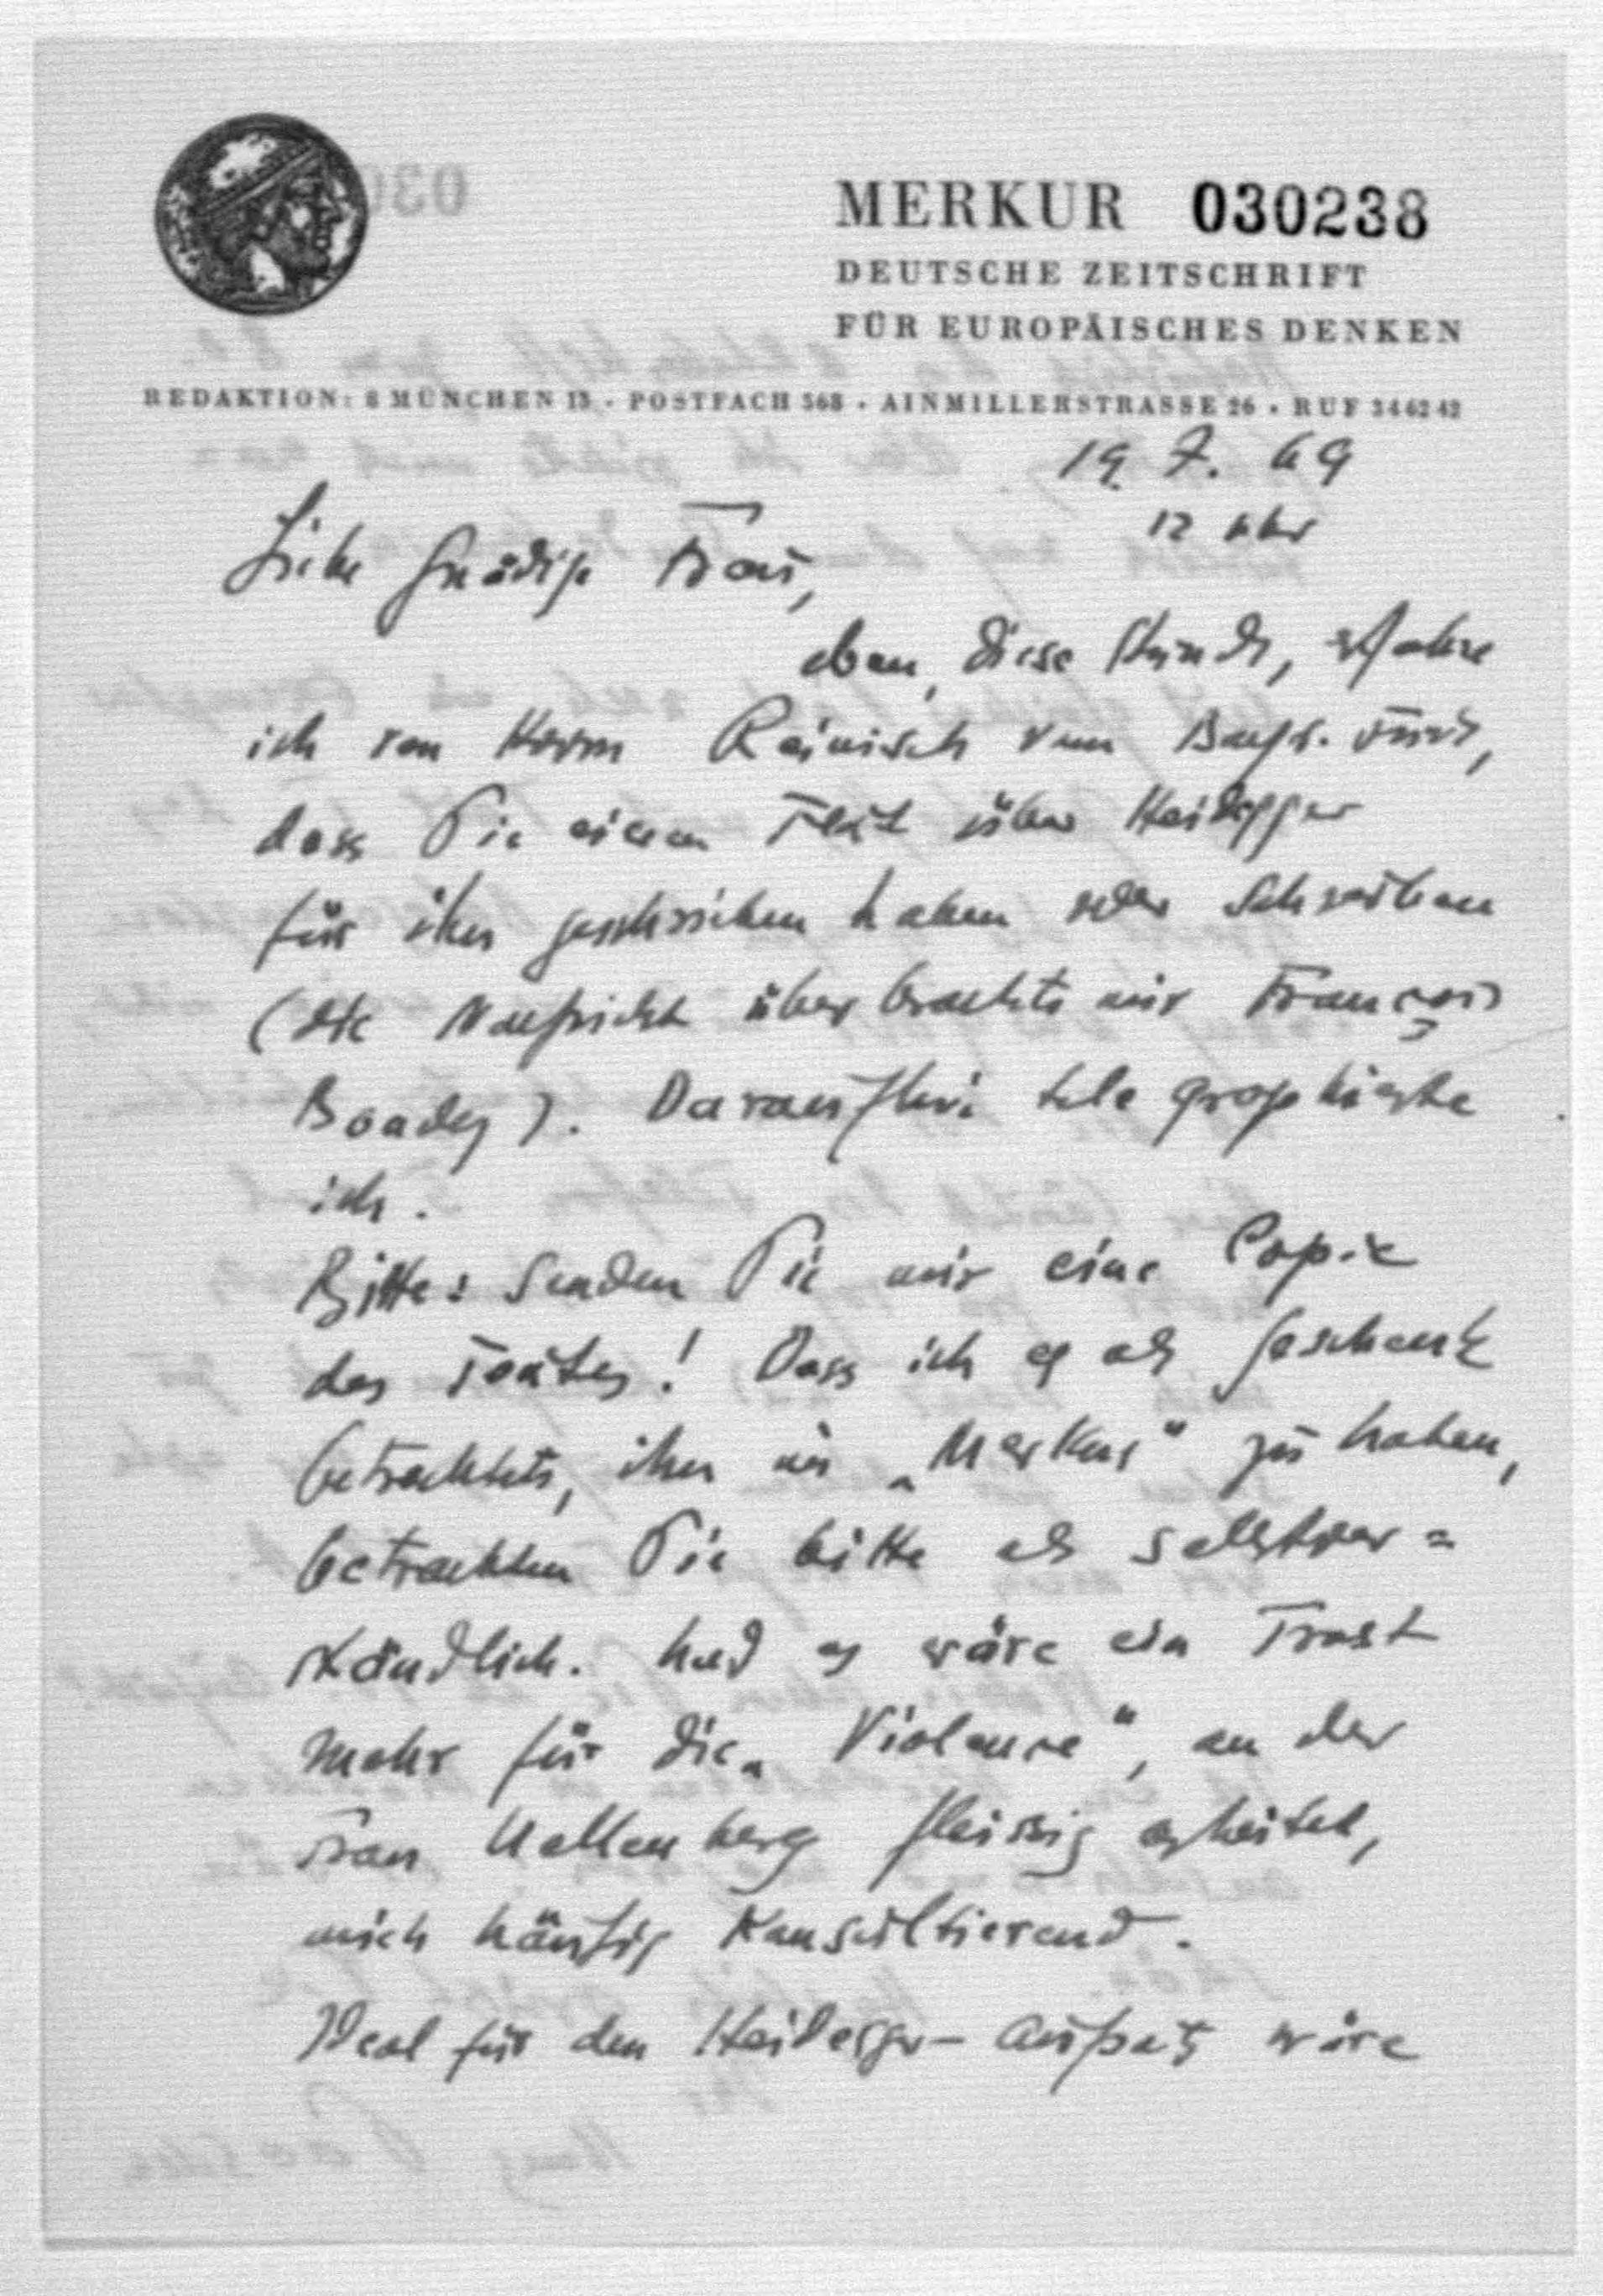 MERKUR 030238
DEUTSCHE ZEITSCHRIFT
FÜR EUROPÄISCHES DENKEN
REDAKTION: 8 MÜNCHEN 13 · POSTFACH 568 · AINMILLERSTRASSE 26 · RUF 346242
19. 7. 69
12 Uhr
Liebe Gnädige Frau,
eben, diese Stunde, erfahre
ich von Herrn Reinisch vom Bayr. Funk,
dass Sie einen Text über Heidegger
für ihn geschrieben haben oder schreiben
(die Nachricht überbrachte mir François
Bondy). Daraufhin telegraphierte
ich.
Bitte: senden Sie mir eine Copie
des Textes! Dass ich es als Geschenk
betrachte, ihn im „Merkur" zu haben,
betrachten Sie bitte als selbstver=
ständlich. Und es wäre ein Trost
mehr für die „Violence", an der
Frau Uellenberg fleissig arbeitet,
mich häufig konsultierend.
Ideal für den Heidegger-Aufsatz wäre